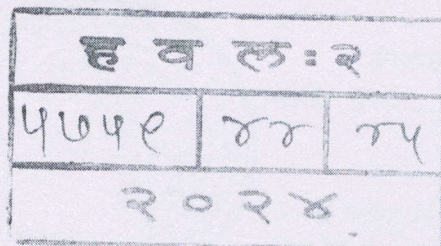 ह व ल : २
५७५९ ४४ ४५
२०२४